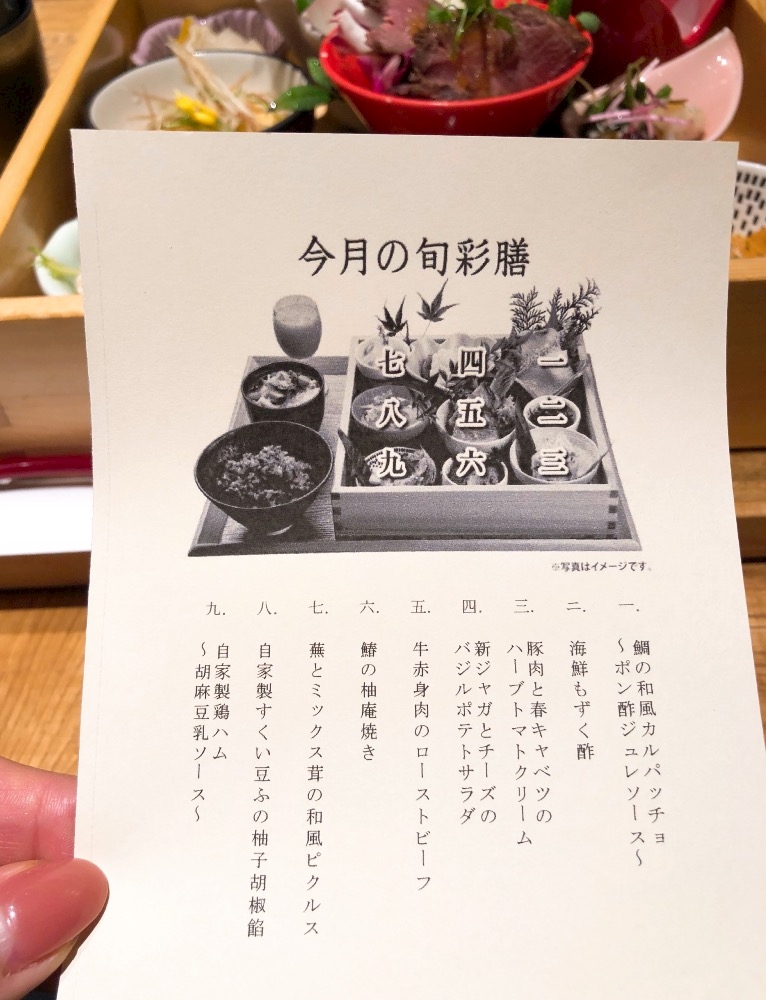 今月の旬彩膳
七 四 一
八 五 二
九 六 三
※写真はイメージです。
一. 鯛の和風カルパッチョ
〜ポン酢ジュレソース〜
二. 海鮮もずく酢
三. 豚肉と春キャベツの
ハーブトマトクリーム
四. 新ジャガとチーズの
バジルポテトサラダ
五. 牛赤身肉のローストビーフ
六. 鰆の柚庵焼き
七. 蕪とミックス茸の和風ピクルス
八. 自家製すくい豆ふの柚子胡椒餡
九. 自家製鶏ハム
〜胡麻豆乳ソース〜